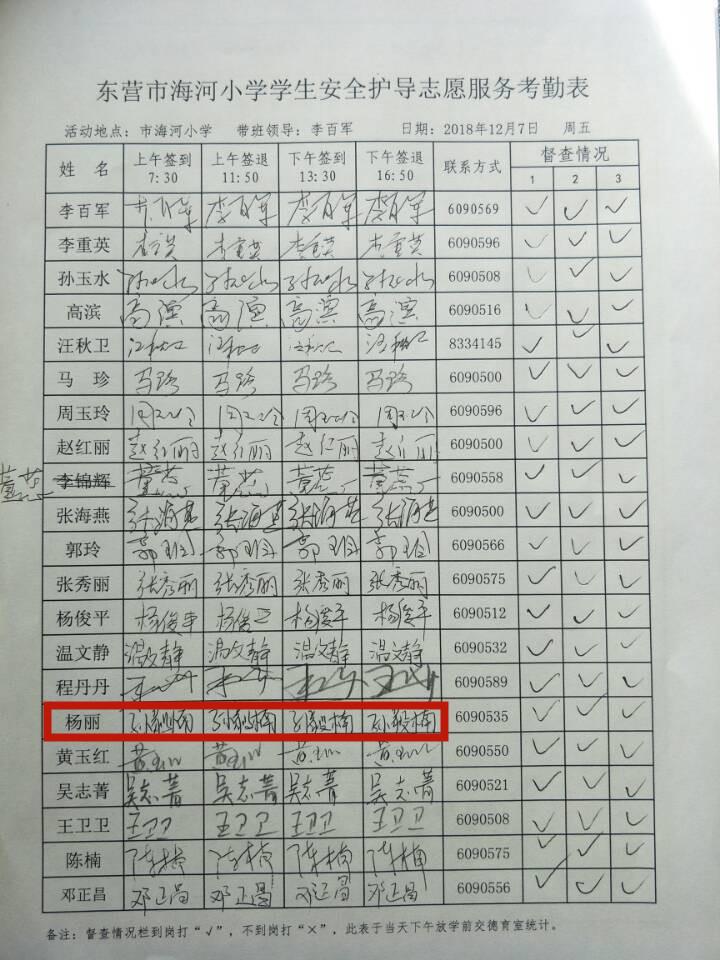 东营市海河小学学生安全护导志愿服务考勤表
活动地点：市海河小学 带班领导：李百军 日期：2018年12月7日 周五
姓 名 上午签到 7:30 上午签退 11:50 下午签到 13:30 下午签退 16:50 联系方式 督查情况 1 2 3
李百军 李百军 李百军 李百军 李百军 6090569 ✓ ✓ ✓
李重英 李重英 李重英 李重英 李重英 6090596 ✓ ✓ ✓
孙玉水 孙玉水 孙玉水 孙玉水 孙玉水 6090508 ✓ ✓ ✓
高滨 高滨 高滨 高滨 高滨 6090516 ✓ ✓ ✓
汪秋卫 汪秋卫 汪秋卫 汪秋卫 汪秋卫 8334145 ✓ ✓ ✓
马 珍 马珍 马珍 马珍 马珍 6090500 ✓ ✓ ✓
周玉玲 周玉玲 周玉玲 周玉玲 周玉玲 6090596 ✓ ✓ ✓
赵红丽 赵红丽 赵红丽 赵红丽 赵红丽 6090500 ✓ ✓ ✓
董蕊 李锦辉 董蕊 董蕊 董蕊 董蕊 6090558 ✓ ✓ ✓
张海燕 张海燕 张海燕 张海燕 张海燕 6090500 ✓ ✓ ✓
郭玲 郭玲 郭玲 郭玲 郭玲 6090566 ✓ ✓ ✓
张秀丽 张秀丽 张秀丽 张秀丽 张秀丽 6090575 ✓ ✓ ✓
杨俊平 杨俊平 杨俊平 杨俊平 杨俊平 6090512 ✓ ✓ ✓
温文静 温文静 温文静 温文静 温文静 6090532 ✓ ✓ ✓
程丹丹 6090589 ✓ ✓ ✓
杨丽 6090535 ✓ ✓ ✓
黄玉红 黄玉红 黄玉红 黄玉红 黄玉红 6090550 ✓ ✓ ✓
吴志菁 吴志菁 吴志菁 吴志菁 吴志菁 6090521 ✓ ✓ ✓
王卫卫 王卫卫 王卫卫 王卫卫 王卫卫 6090508 ✓ ✓ ✓
陈楠 陈楠 陈楠 陈楠 陈楠 6090575 ✓ ✓ ✓
邓正昌 邓正昌 邓正昌 邓正昌 邓正昌 6090556 ✓ ✓ ✓
备注：督查情况栏到岗打“√”，不到岗打“×”，此表于当天下午放学前交德育室统计。